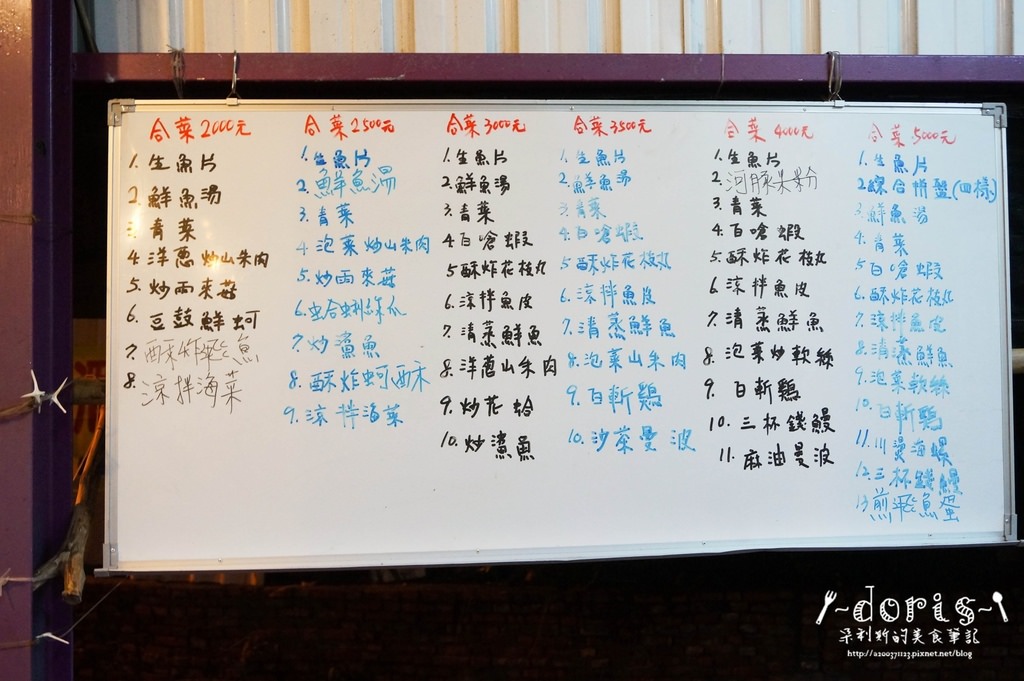 合菜2000元
1.生魚片
2.鮮魚湯
3.青菜
4.洋蔥炒山朱肉
5.炒雨來菇
6.豆鼓鮮蚵
7.酥炸飛魚
8.涼拌海菜
合菜2500元
1.生魚片
2.鮮魚湯
3.青菜
4.泡菜炒山朱肉
5.炒雨來菇
6.蛤蜊絲瓜
7.炒鯊魚
8.酥炸蚵酥
9.涼拌海菜
合菜3000元
1.生魚片
2.鮮魚湯
3.青菜
4.白嗆蝦
5.酥炸花枝丸
6.涼拌魚皮
7.清蒸鮮魚
8.洋蔥山朱肉
9.炒花蛤
10.炒鯊魚
合菜3500元
1.生魚片
2.鮮魚湯
3.青菜
4.白嗆蝦
5.酥炸花枝丸
6.涼拌魚皮
7.清蒸鮮魚
8.泡菜山朱肉
9.白斬鷄
10.沙茶曼波
合菜4000元
1.生魚片
2.河豚米粉
3.青菜
4.白嗆蝦
5.酥炸花枝丸
6.涼拌魚皮
7.清蒸鮮魚
8.泡菜炒軟絲
9.白斬鷄
10.三杯錢鰻
11.麻油曼波
合菜5000元
1.生魚片
2.綜合拼盤(四樣)
3.鮮魚湯
4.青菜
5.白嗆蝦
6.酥炸花枝丸
7.涼拌魚皮
8.清蒸鮮魚
9.泡菜軟絲
10.白斬鷄
11.川燙海螺
12.三杯錢鰻
13.煎飛魚蛋
-doris-
朵利斯的美食筆記
http://a200371123.pixnet.net/blog